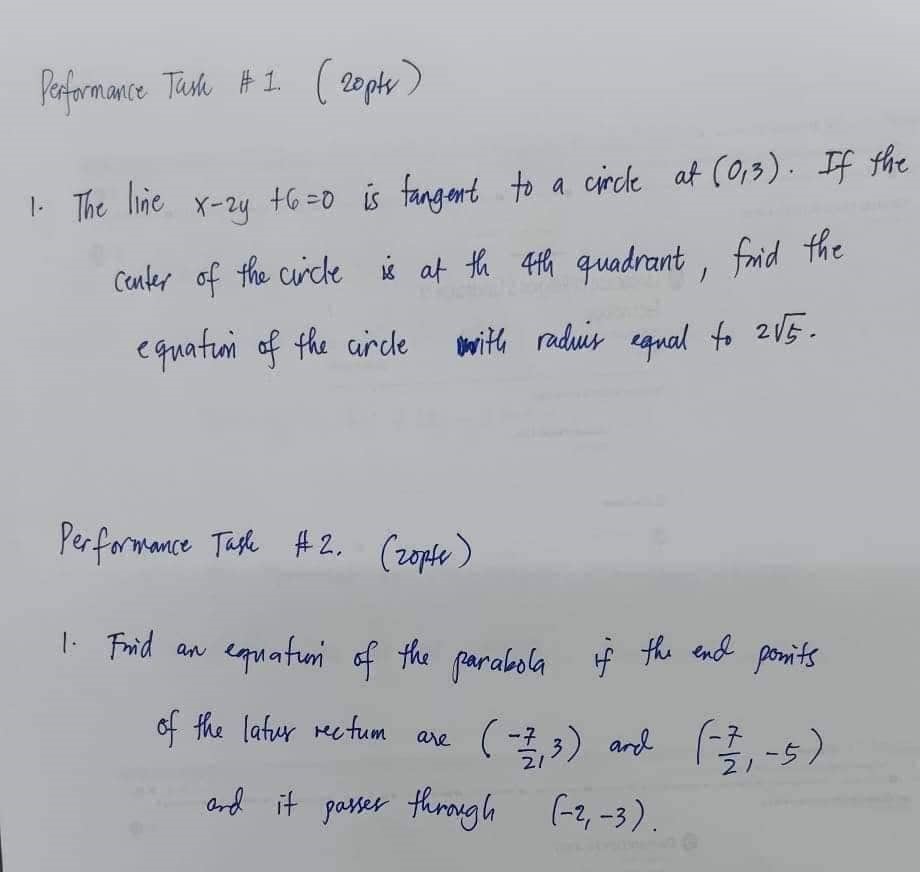 Performance Task # 1. (20pts)
1. The line x-2y +6=0 is tangent to a circle at (0,3). If the
center of the circle is at th 4th quadrant, find the
equation of the circle with radius equal to 2√5.
Performance Task # 2. (20pts)
1. Find an equation of the parabola if the end points
of the latus rectum are (-7/2, 3) and (-7/2, -5)
and it passes through (-2, -3).